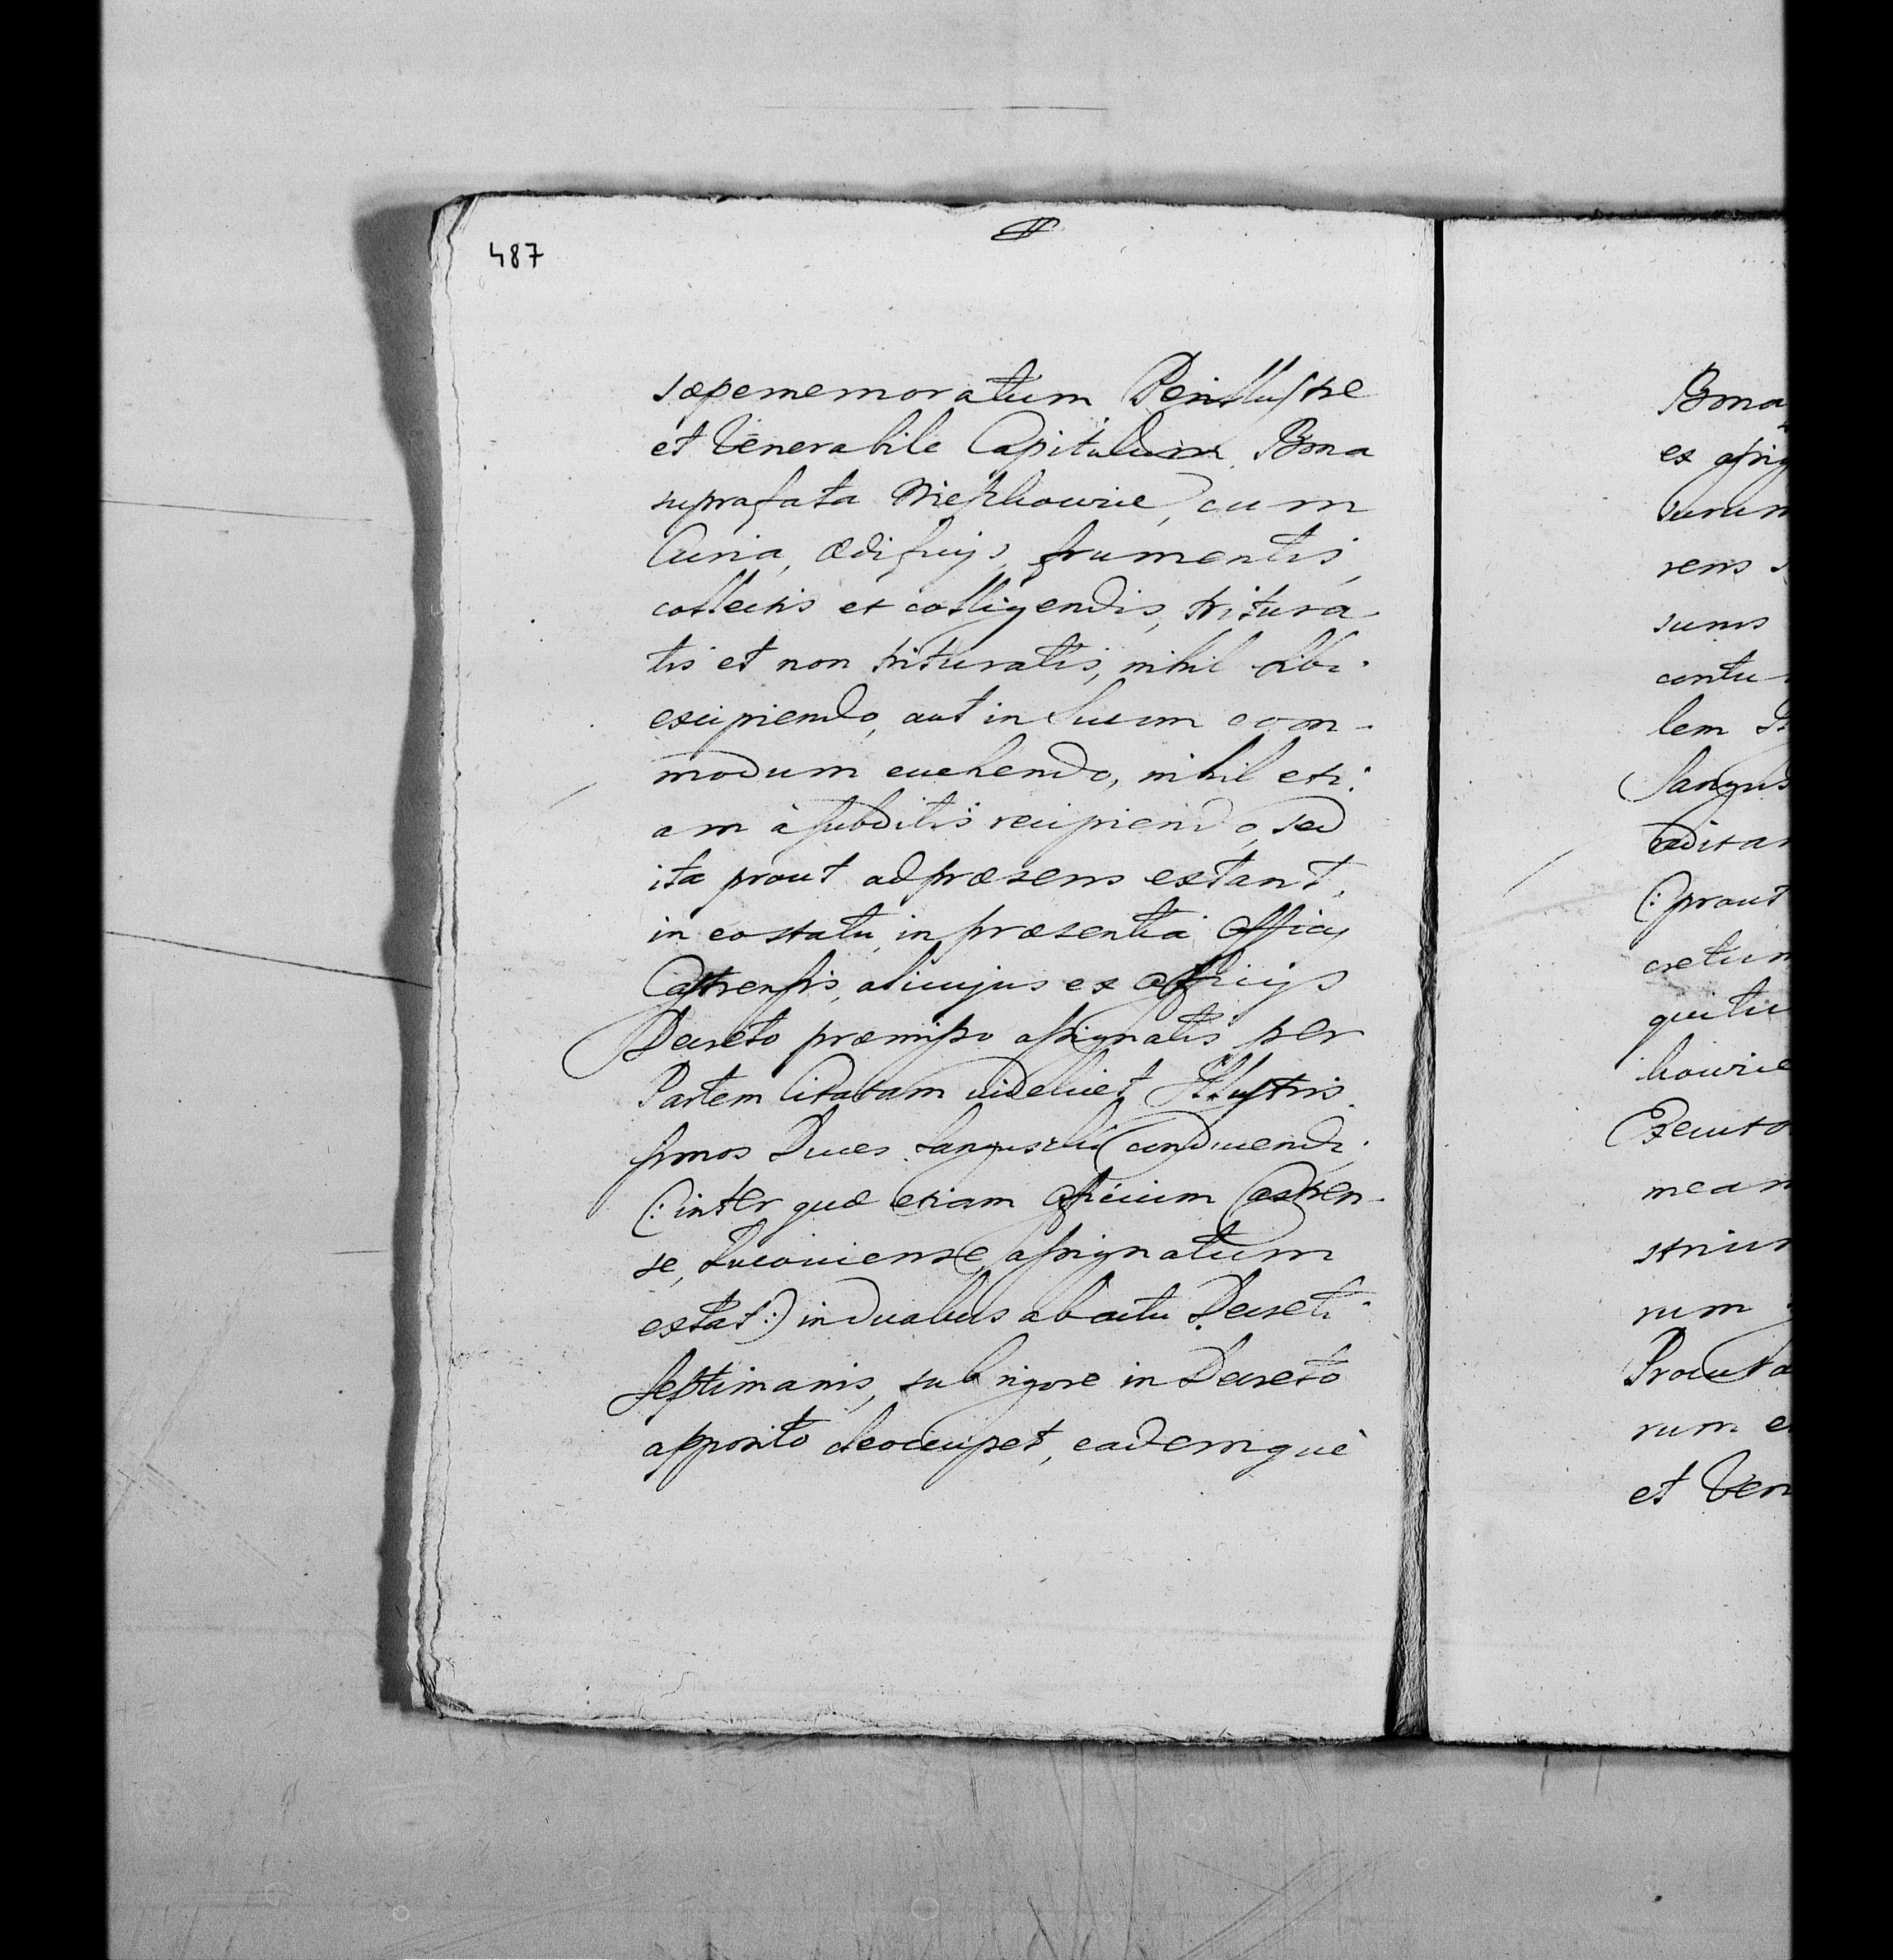 487
sæpememoratum Perillustre
et Venerabile Capitulum Bona
suprafata cum
Curia, ædificijs, frumentis,
collectis et colligendis, tritura
tis et non trituratis, nihil sibi
excipiendo, aut in Suum com-
modum euehendo, nihil eti:
am à subditis recipiendo, sed
ita prout ad præsens extant,
in eo statu, in præsentia Officij
Castrensis, alicujus ex Officijs
Decreto præmisso assignatis per
Partem Citatam videlicet Illustris
simos Duces condicendi
(: inter quæ etiam Officium Castren-
se, Luceoriense, assignatum
extat :) in duabus ab actu Decreti
Septimanis, sub rigore in Decreto
apposito deoccupet, eademquè
Bona
ex assig
rens
sums
contu
lem
Sangus
adita
(: prout
cretum
quitu
howice
Executo
mean
rum
Procura
rum e
et Ven